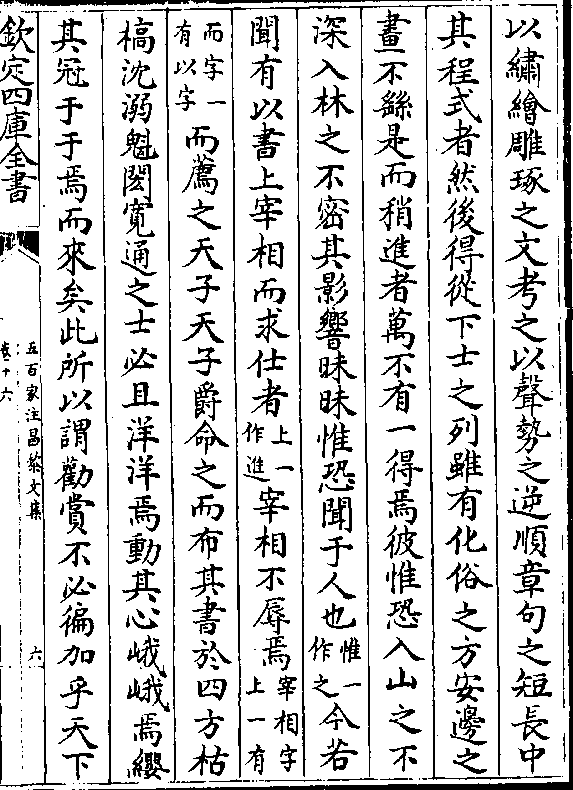 以繡繪雕琢之文考之以聲勢之逆順章句之短長中
其程式者然後得從下士之列雖有化俗之方安邊之
畫不繇是而稍進者萬不有一得焉彼惟恐入山之不
深入林之不密其影響昧昧惟恐聞于人也惟一作之今若
聞有以書上宰相而求仕者上一作進宰相不辱焉宰相字上一有
而字一有以字而薦之天子天子爵命之而布其書於四方枯
槁沈溺魁閎寬通之士必且洋洋焉動其心峨峨焉纓
其冠于于焉而來矣此所以謂勸賞不必徧加乎天下
欽定四庫全書
五百家注昌黎文集
卷十六
六